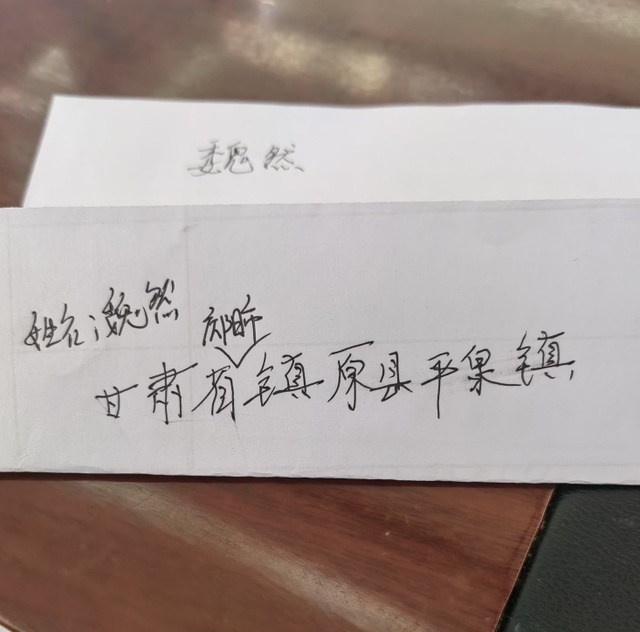 魏然
姓名：魏然
庆阳市
甘肃省镇原县平果镇